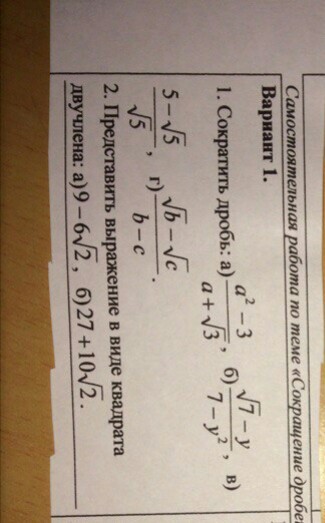 Самостоятельная работа по теме «Сокращение дробе
Вариант 1.
1. Сократить дробь: а) (a² − 3)/(a + √3), б) (√7 − y)/(7 − y²), в)
(5 − √5)/√5, г) (√b − √c)/(b − c).
2. Представить выражение в виде квадрата
двучлена: а) 9 − 6√2, б) 27 + 10√2.